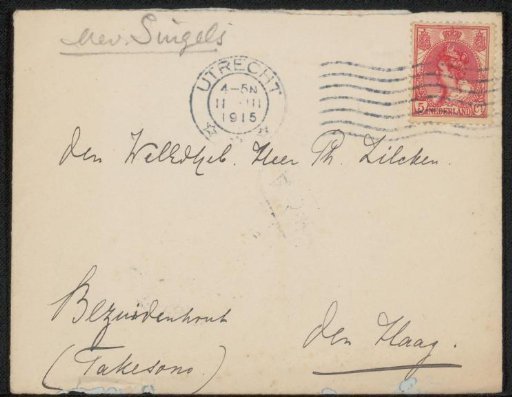 Mev. Singels
UTRECHT
4-5N
11 III
1915
5 NEDERLAND Ct
Den WelEdgeb. Heer Ph. Zilcken.
Bezuidenhout
(Takesono)
Den Haag.